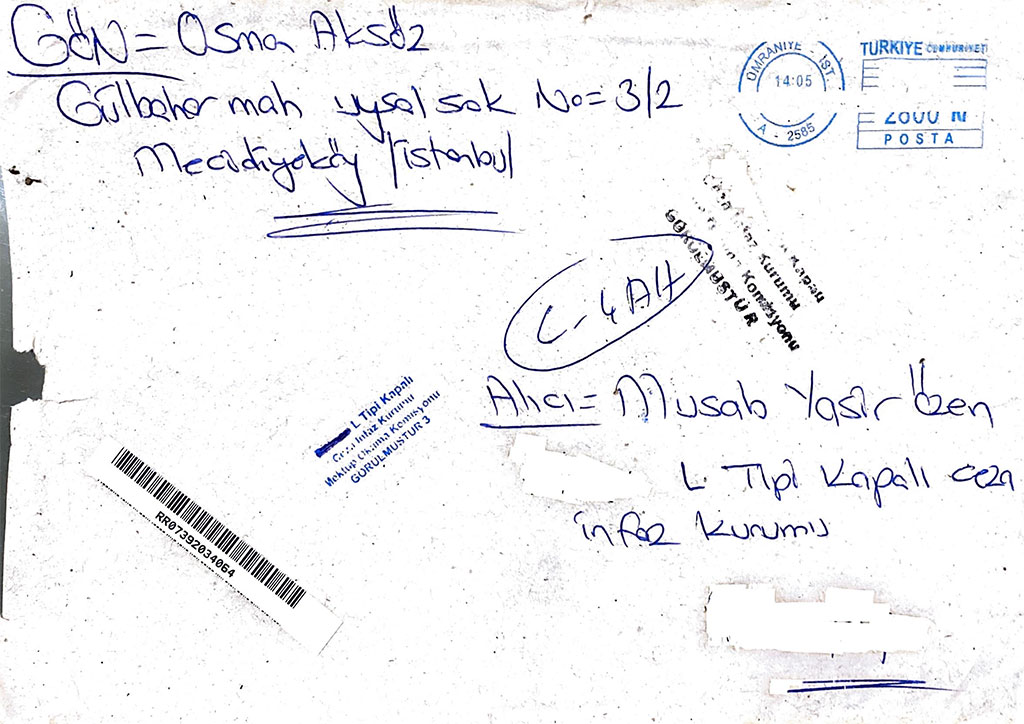 GÖN = Osman Aksöz
Gülbahar mah uysal sok No = 3/2
Mecidiyeköy / istanbul
ÜMRANİYE - İST.
14:05
A - 2585
TÜRKİYE CUMHURİYETİ
POSTA
Kapalı
Ceza İnfaz Kurumu
Komisyonu
GÖRÜLMÜŞTÜR
C-4 Alt
L Tipi Kapalı
Ceza İnfaz Kurumu
Mektup Okuma Komisyonu
GÖRÜLMÜŞTÜR 3
Alıcı = Musab Yasir Özen
L Tipi Kapalı ceza
infaz kurumu
RR07392034064